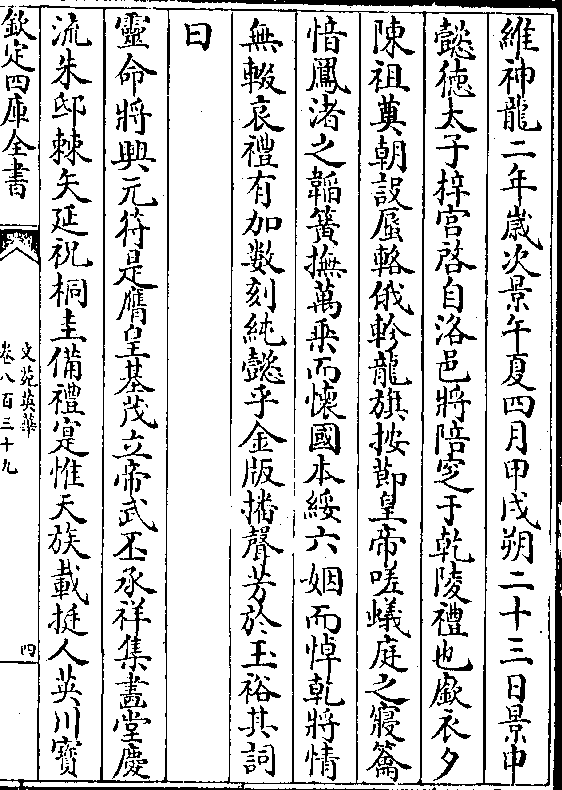 維神龍二年歲次景午夏四月甲戌朔二十三日景申
懿徳太子梓宮啓自洛邑將陪窆于乾陵禮也廞衣夕
陳祖奠朝設蜃輅俄軫龍旗按節皇帝嗟蟻庭之寢籥
愔鳳渚之韜簧撫萬乘而懷國本綏六姻而悼乾將情
無輟哀禮有加數刻純懿乎金版播聲芳於玉裕其詞
曰
靈命將興元符是膺皇基茂立帝武丕承祥集畫堂慶
流朱邸棘矢延祝桐圭備禮寔惟天族載挺人英川寳
欽定四庫全書
文苑英華
卷八百三十九
四